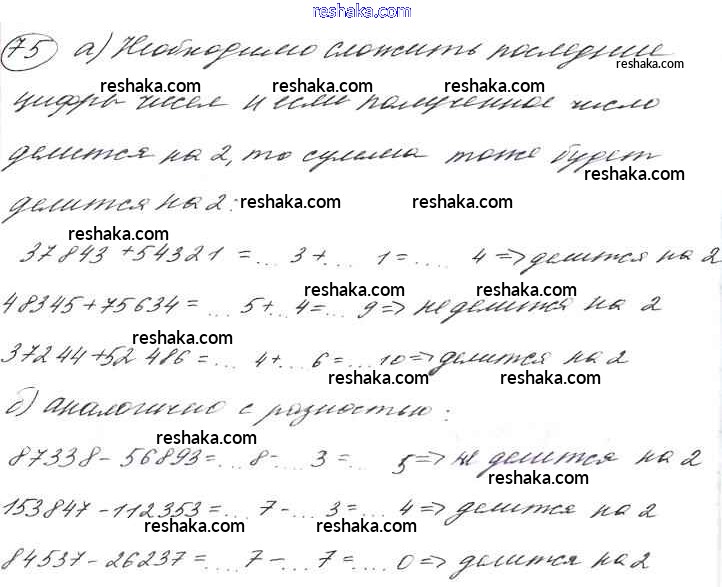 reshaka.com
75 а) Необходимо сложить последние
reshaka.com
reshaka.com reshaka.com
цифры чисел и если полученное число
делится на 2, то сумма тоже будет
reshaka.com
делится на 2: reshaka.com reshaka.com
reshaka.com
37843 + 54321 = ... 3 + ... 1 = ... 4 => делится на 2
reshaka.com reshaka.com
48345 + 75634 = ... 5 + ... 4 = ... 9 => не делится на 2
reshaka.com
37244 + 52486 = ... 4 + ... 6 = ... 10 => делится на 2
reshaka.com reshaka.com
б) аналогично с разностью:
reshaka.com
87338 - 56893 = ... 8 - ... 3 = ... 5 => не делится на 2
reshaka.com
153847 - 112353 = ... 7 - ... 3 = ... 4 => делится на 2
reshaka.com reshaka.com
84537 - 26237 = ... 7 - ... 7 = ... 0 => делится на 2